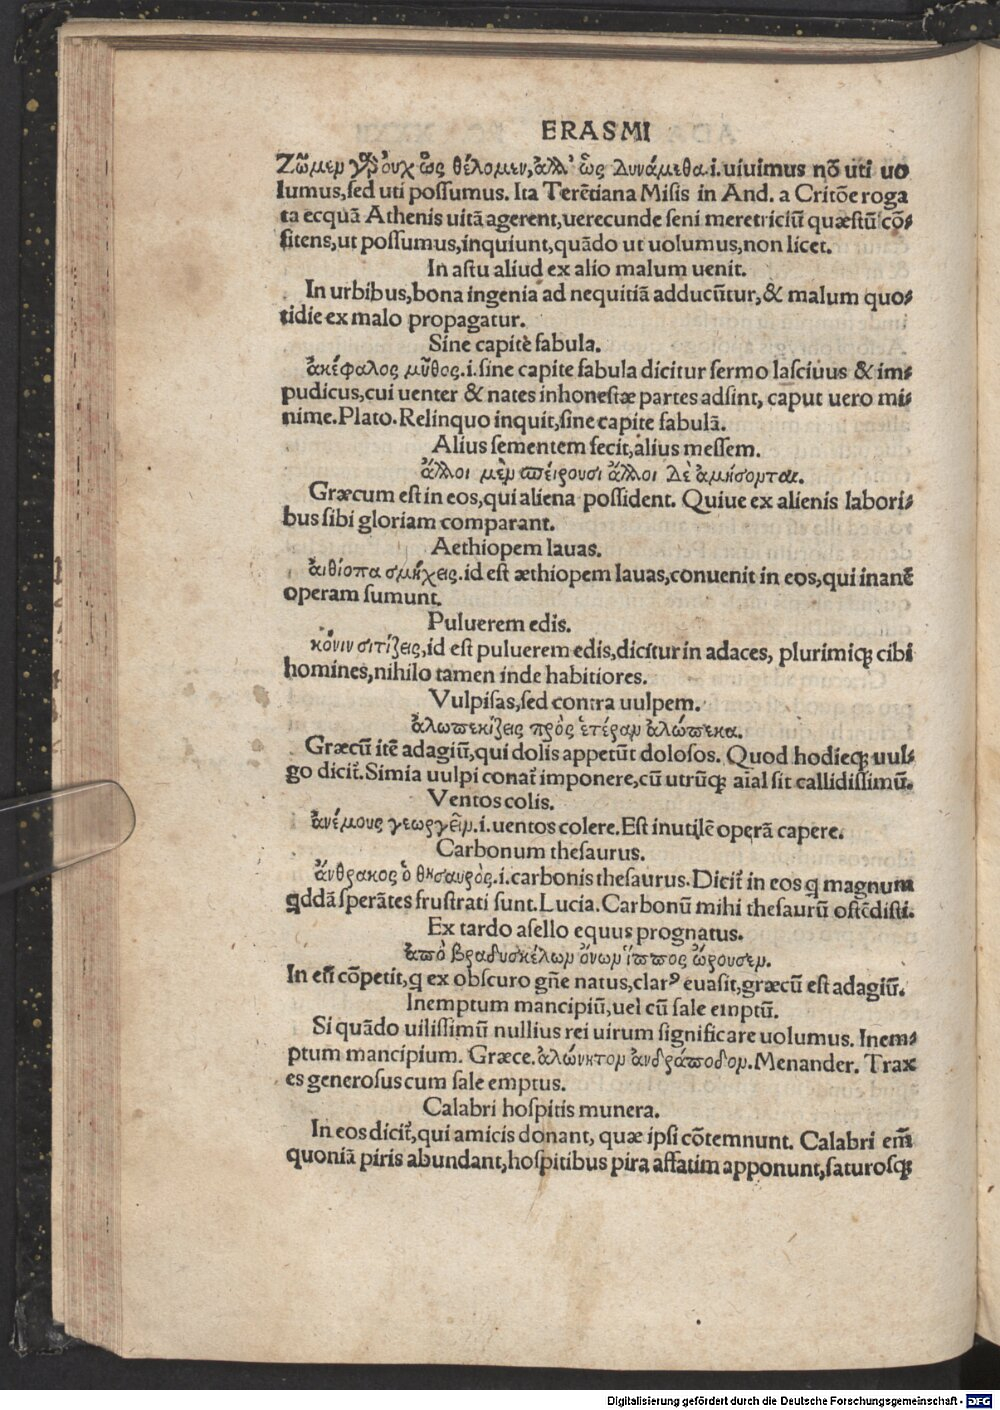 ERASMI
Ζῶμεν γὰρ οὐχ ὡς θέλομεν, ἀλλ’ ὡς δυνάμεθα.i.uiuimus nō uti uo
lumus,sed uti possumus. Ita Terētiana Misis in And. a Critōe roga
ta ecquā Athenis uitā agerent,uerecunde seni meretriciū quæstū cō⸗
fitens,ut possumus,inquiunt,quādo ut uolumus,non licet.
In astu aliud ex alio malum uenit.
In urbibus,bona ingenia ad nequitiā adducūtur,& malum quo⸗
tidie ex malo propagatur.
Sine capite fabula.
ἀκέφαλος μῦθος.i.sine capite fabula dicitur sermo lasciuus & im⸗
pudicus,cui uenter & nates inhonestæ partes adsint, caput uero mi⸗
nime.Plato.Relinquo inquit,sine capite fabulā.
Alius sementem fecit,alius messem.
ἄλλοι μὲν σπείρουσι ἄλλοι δὲ ἀμήσονται.
Græcum est in eos,qui aliena possident. Quiue ex alienis labori⸗
bus sibi gloriam comparant.
Aethiopem lauas.
ἀιθίοπα σμήχεις.id est æthiopem lauas,conuenit in eos,qui inanē
operam sumunt.
Puluerem edis.
κόνιν σιτίζεις,id est puluerem edis,dicitur in adaces, plurimiqꝫ cibi
homines,nihilo tamen inde habitiores.
Vulpisas,sed contra uulpem.
ἀλωπεκίζεις πρὸς ἑτέραν ἀλώπεκα.
Græcū itē adagiū,qui dolis appetūt dolosos. Quod hodieqꝫ uul⸗
go dicit̄.Simia uulpi conat̄ imponere,cū utrūqꝫ aīal sit callidissimū.
Ventos colis.
ἀνέμους γεωργεῖν.i.uentos colere.Est inutilē operā capere.
Carbonum thesaurus.
ἄνθρακος ὁ θησαυρὸς.i.carbonis thesaurus.Dicit̄ in eos q magnum
qddā sperātes frustrati sunt.Lucia.Carbonū mihi thesaurū ostēdisti.
Ex tardo asello equus prognatus.
ἀπὸ βραδυσκέλων ὄνων ἵππος ὤρουσεν.
In eū cōpetit,q ex obscuro gñe natus,clarꝰ euasit,græcū est adagiū.
Inemptum mancipiū,uel cū sale emptū.
Si quādo uilissimū nullius rei uirum significare uolumus. Inem⸗
ptum mancipium. Græce.ἀλώνητον ἀνδράποδον.Menander. Trax
es generosus cum sale emptus.
Calabri hospitis munera.
In eos dicit̄,qui amicis donant, quæ ipsi cōtemnunt. Calabri em̄
quoniā piris abundant,hospitibus pira affatim apponunt,saturosqꝫ
Digitalisierung gefördert durch die Deutsche Forschungsgemeinschaft - DFG